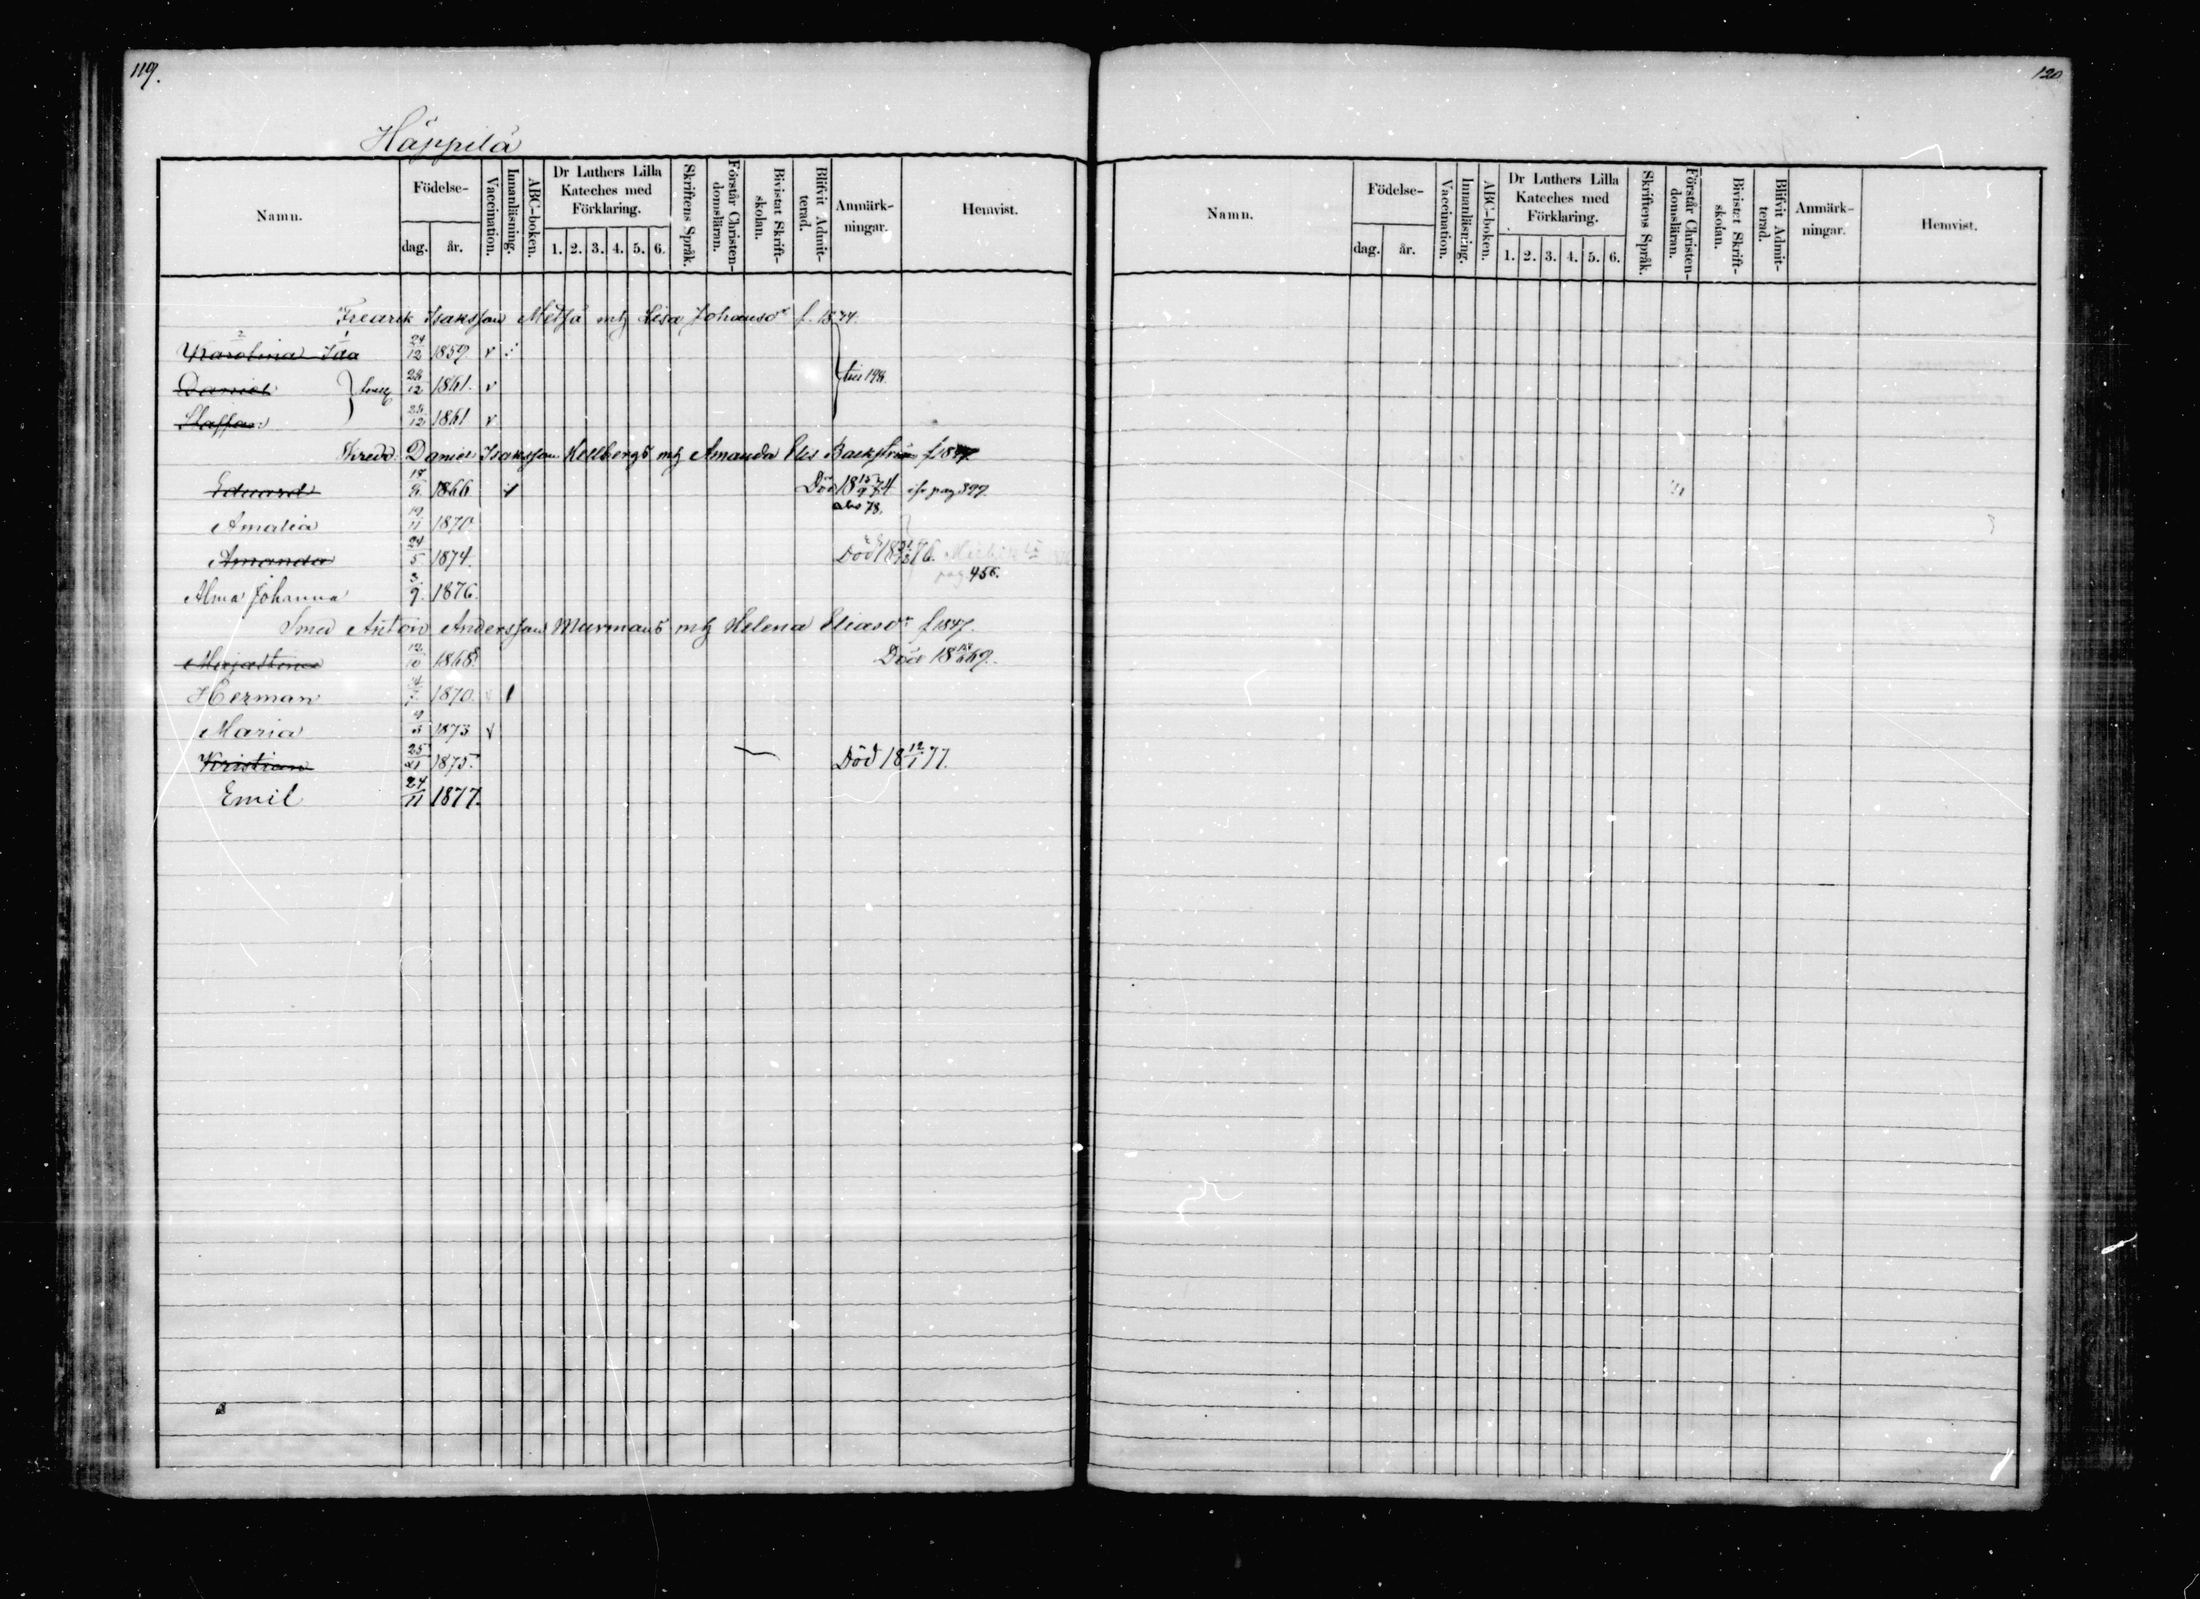 119.
Häppilä
Namn. Födelse- dag. år. Vaccination. Innanläsning. ABC-boken. Dr Luthers Lilla Kateches med Förklaring. 1. 2. 3. 4. 5. 6. Skriftens Språk. Förstår Christendomsläran. Bivistat Skriftskolan. Blifvit Admitterad. Anmärkningar. Hemvist.
Fredrik Isakssons Metsä mtg Lisa Johansdr f. 1874.
2 1
Karolina Ida 24/12 1859. v
Daniel 1861. v till 198.
Staffan 1861 v
Skredd. Daniel Isakssons Kellbergs mtg Amanda Elis Backström
Eduard 1866 Död 18 15/9 74 pag 399.
Amalia 19/11 1870.
Amanda 24/5 1874. Död 76.
pag 456.
Alma Johanna 3/9. 1876.
Smed Anton Anderssons Murmans mtg Helena Eliasdr f 1847.
12/10 1868. Död 18 69.
Herman 1870. v
Maria 1873 v
Kristian 1875. Död 18 12/1 77.
Emil 24/11 1877.
120
Namn. Födelse- dag. år. Vaccination. Innanläsning. ABC-boken. Dr Luthers Lilla Kateches med Förklaring. 1. 2. 3. 4. 5. 6. Skriftens Språk. Förstår Christendomsläran. Bivistat Skriftskolan. Blifvit Admitterad. Anmärkningar. Hemvist.